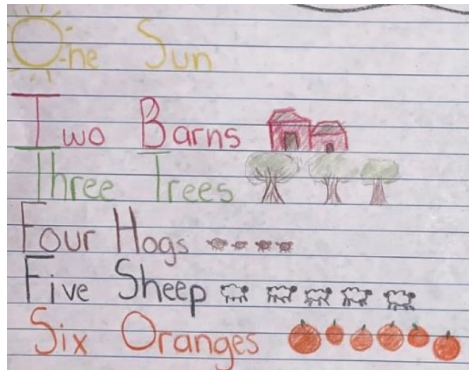 One Sun
Two Barns
Three Trees
Four Hogs
Five Sheep
Six Oranges